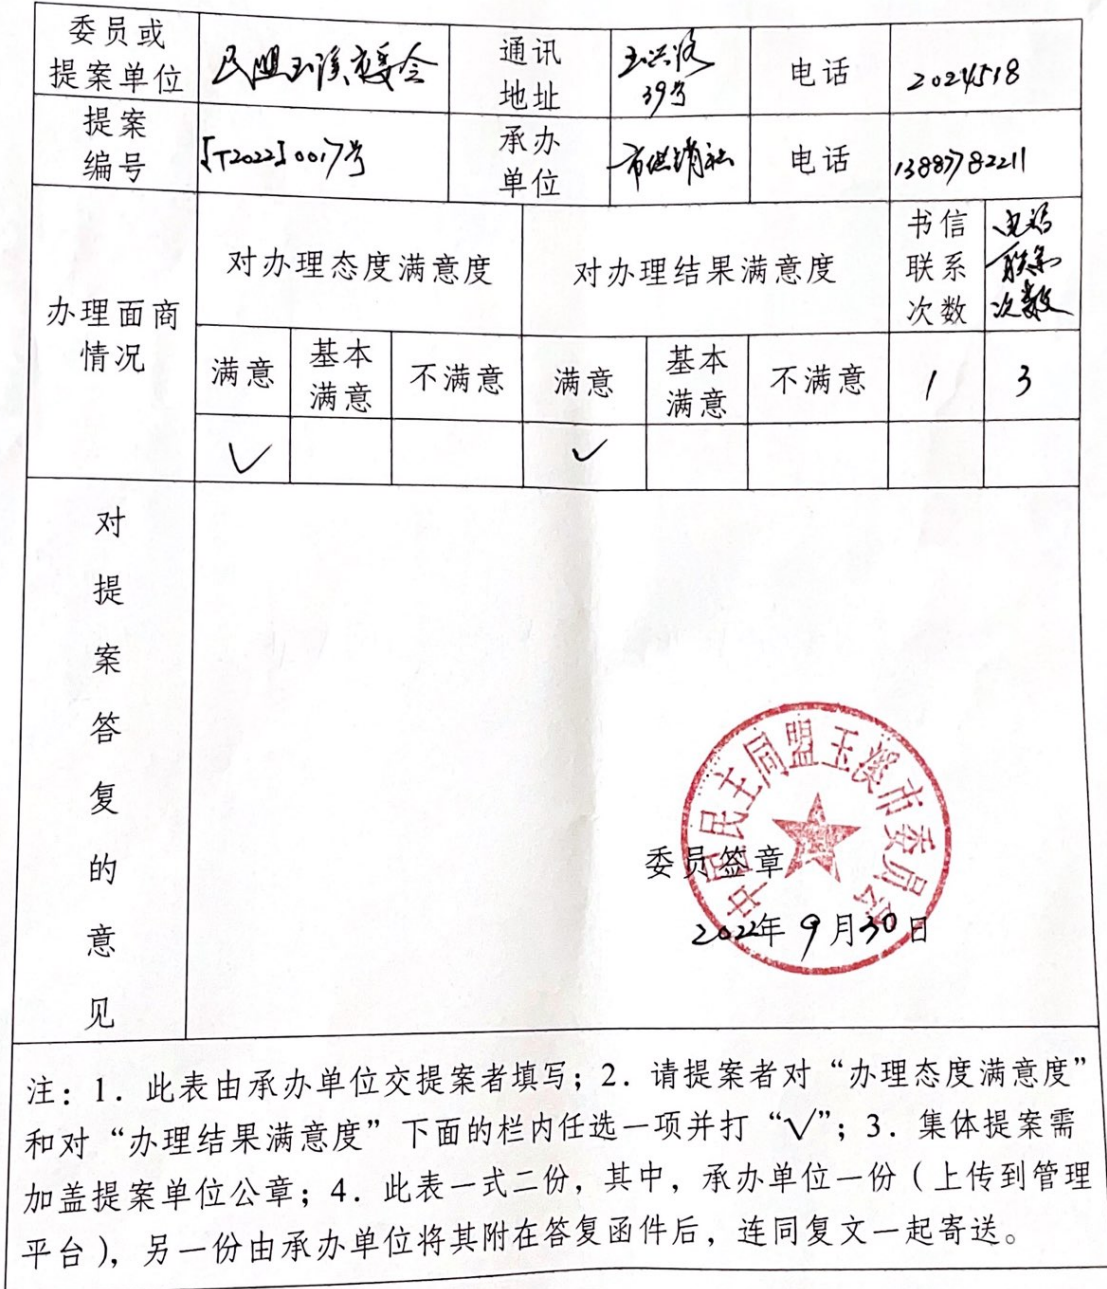 委员或
提案单位
民盟玉溪市委会
通讯
地址
玉兴路
39号
电话
2024518
提案
编号
[T2022]0017号
承办
单位
市供销社
电话
13887782211
办理面商
情况
对办理态度满意度
对办理结果满意度
书信
联系
次数
电话
联系
次数
满意
基本
满意
不满意
满意
基本
满意
不满意
1
3
√
√
对
提
案
答
复
的
意
见
中国民主同盟玉溪市委员会
委员签章
2022年9月30日
注：1．此表由承办单位交提案者填写；2．请提案者对“办理态度满意度”
和对“办理结果满意度”下面的栏内任选一项并打“√”；3．集体提案需
加盖提案单位公章；4．此表一式二份，其中，承办单位一份（上传到管理
平台），另一份由承办单位将其附在答复函件后，连同复文一起寄送。